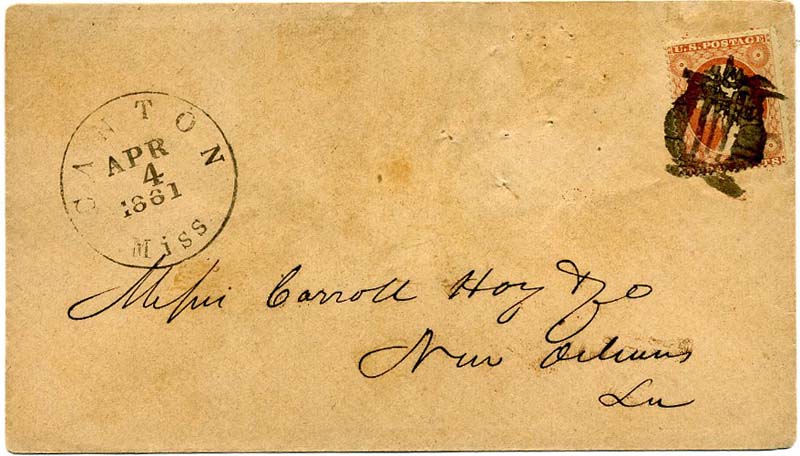 U.S. POSTAGE
CANTON
APR
4
1861
Miss
Messrs Carroll Hoy & Co
New Orleans
La